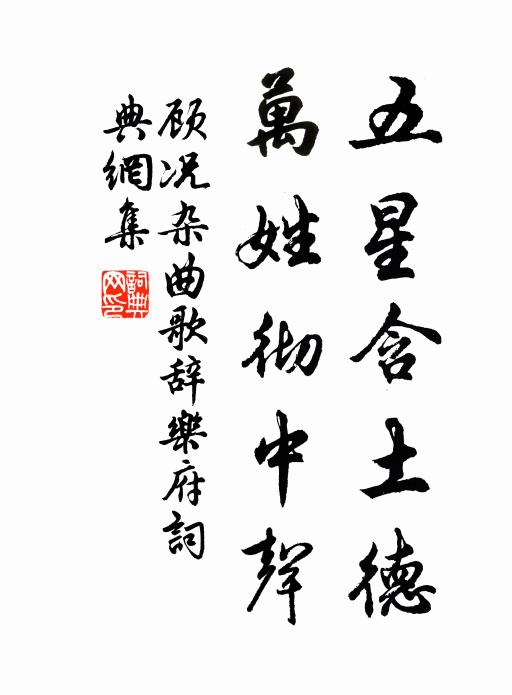 五星含土德
萬姓彻中聲
顾况杂曲歌辞樂府詞
典網集
詞典网印